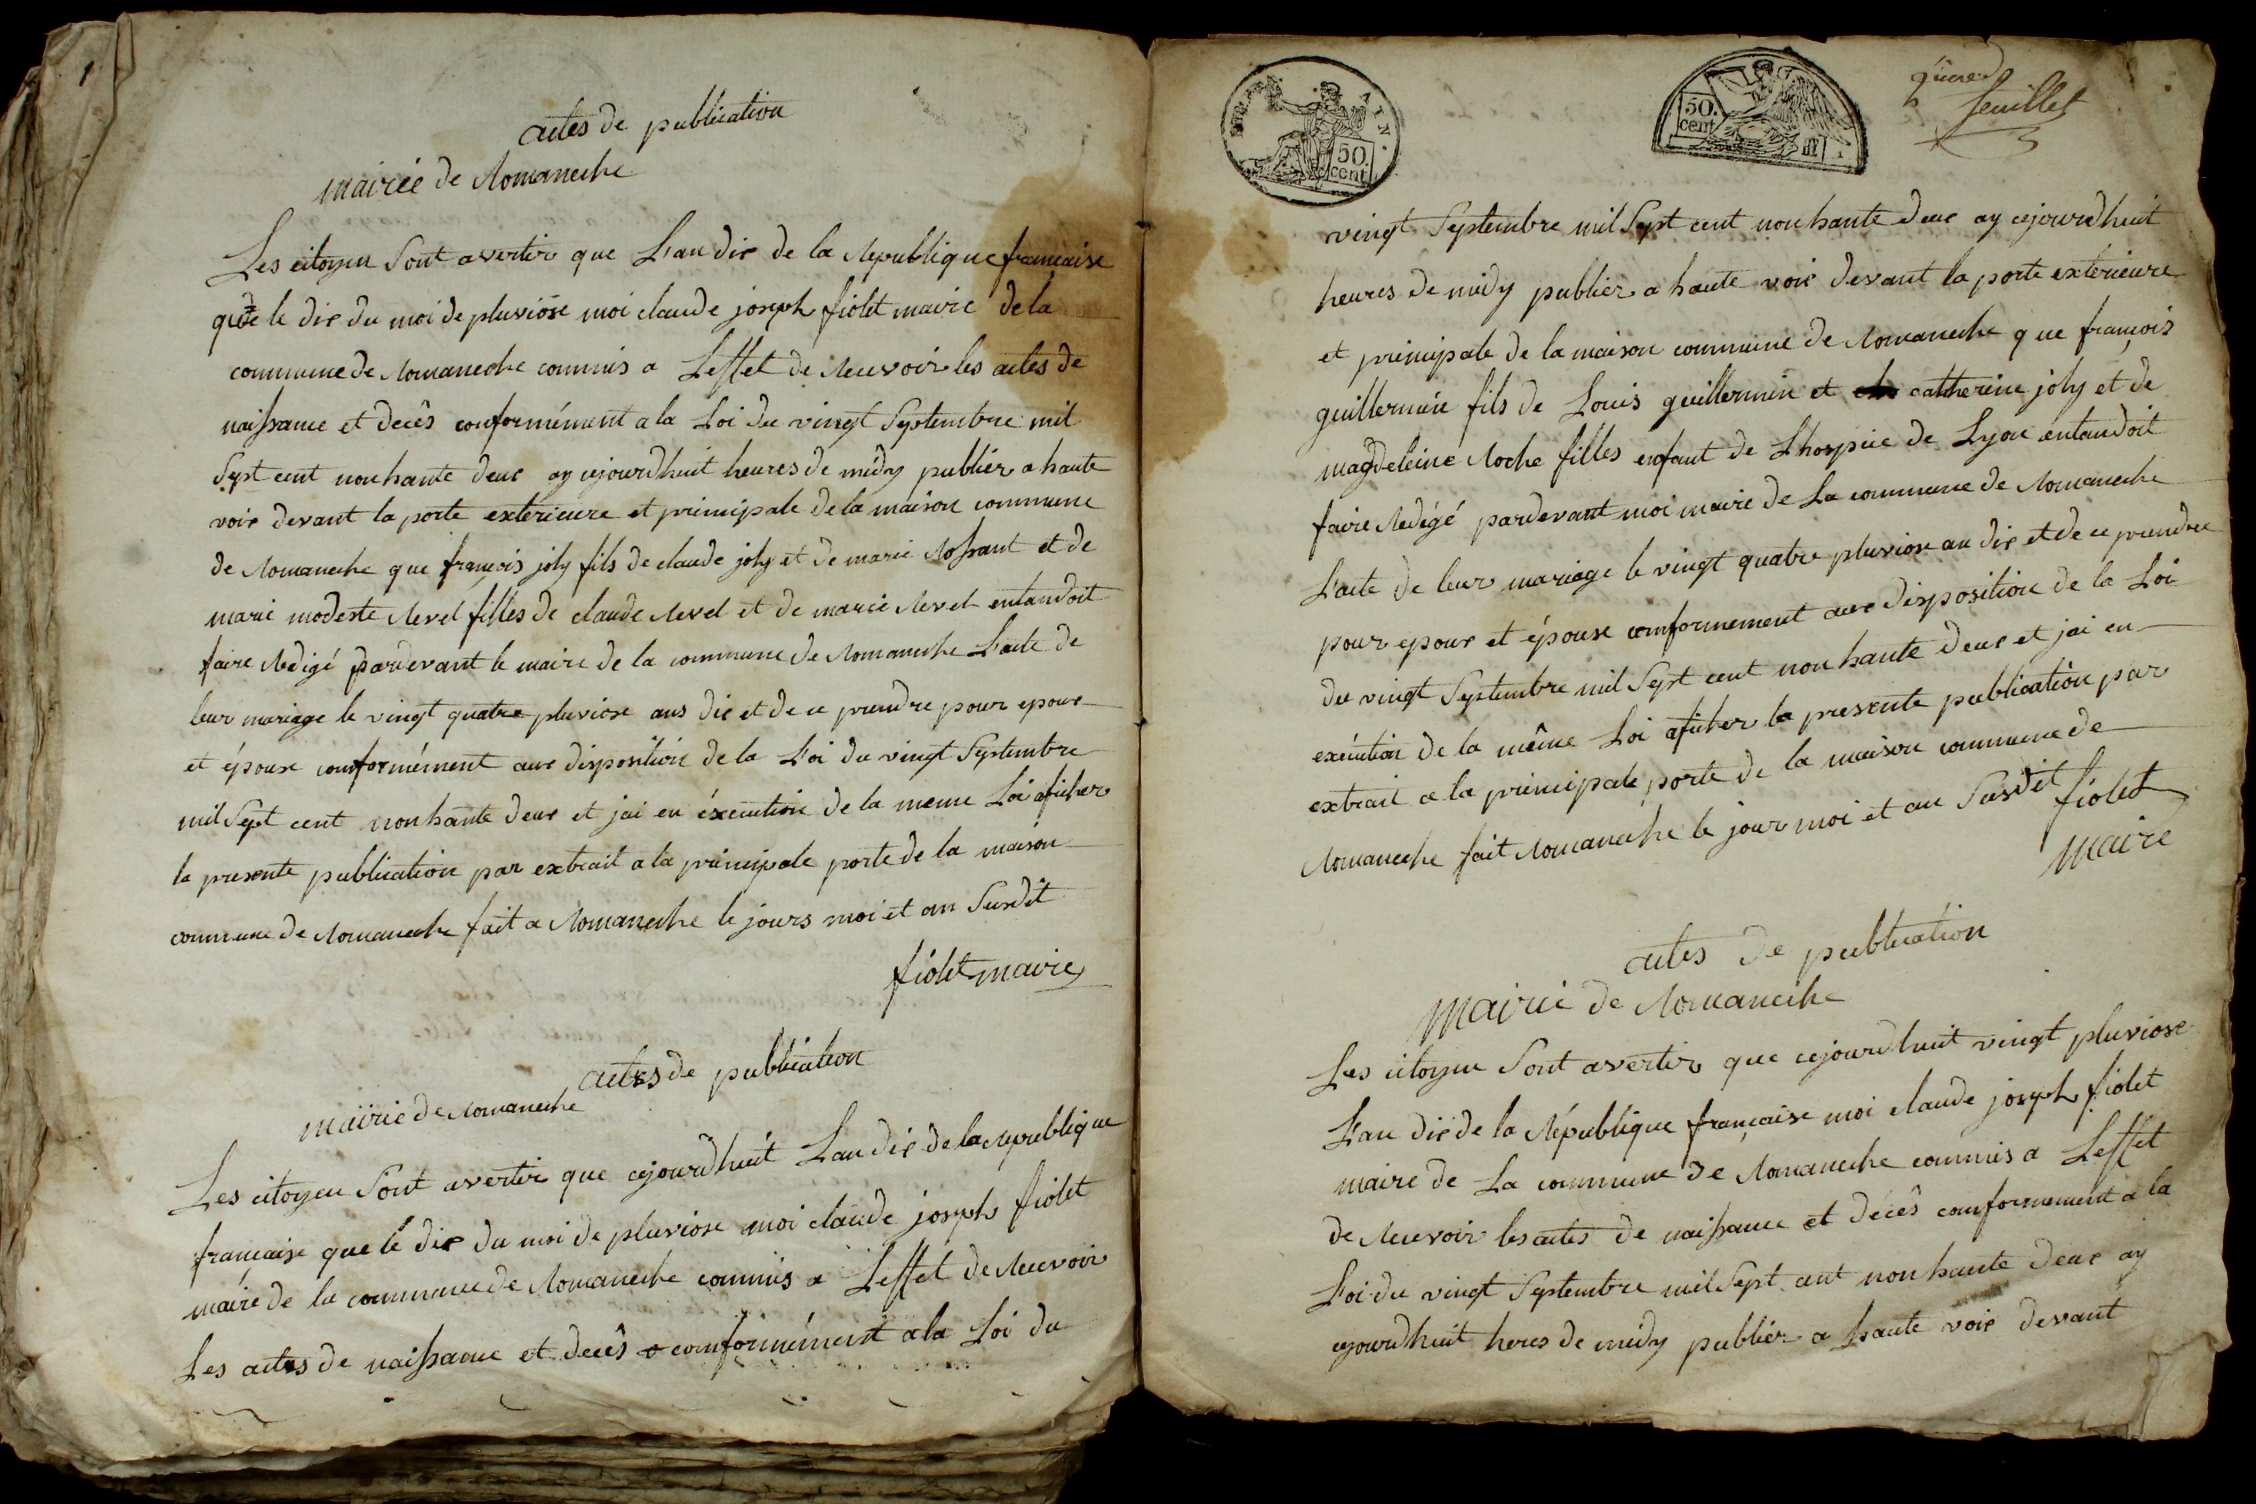 1
actes de publication
mairie de Romaneche
Les citoyen Sont avertir que L'an dix de la Republique francaise
que le dix du moi de pluviose moi claude joseph fiolet maire de la
commune de Romaneche commis a Leffet de Recevoir les actes de
naissance et decês conformément a la Loi du vingt Septembre mil
Sept cent nonhante deux ay cejourdhuit heures de midy publier a haute
voix devant la porte exterieure et principale de la maison commune
de Romaneche que françois joly fils de claude joly et de marie Rossant et de
marie modeste Revel filles de claude Revel et de marie Revel entandoit
faire Redigé pardevant le maire de la commune de Romaneche L'acte de
leur mariage le vingt quatre pluviose ans dix et de ce prendre pour epoux
et épouse conformément aux disposition de la Loi du vingt Septembre
mil Sept cent nonhante deux et jai en éxecution de la meme Loi aficher
la presente publication par extrait a la principale porte de la maison
commune de Romaneche fait a Romaneche le jours moi et an Susdit
fiolet maire
actes de publication
mairie de Romaneche
Les citoyen Sont avertir que cejourdhuit L'an dix de la Republique
francaise que le dix du moi de pluviose moi claude joseph fiolet
maire de la commune de Romaneche commis a Leffet de Recevoir
Les actes de naissance et decês conformément a la Loi du
50. cent
50. cent
feuillet
vingt Septembre mil Sept cent nonhante deux ay cejourdhuit
heures de midy publier a haute voix devant la porte exterieure
et principale de la maison commune de Romaneche que françois
guillermin fils de Louis guillermin et catherine joly et de
magdeleine Roche filles enfant de Lhospice de Lyon entandoit
faire Redigé pardevant moi maire de La commune de Romaneche
L'acte de leur mariage le vingt quatre pluviose an dix et de ce prendre
pour epoux et épouse conformement aux disposition de la Loi
du vingt Septembre mil Sept cent nonhante deux et jai en
exécution de la même Loi aficher la presente publication par
extrait a la principale porte de la maison commune de
Romaneche fait Romaneche le jour moi et an Susdit fiolet
maire
actes de publication
Mairie de Romaneche
Les citoyen Sont avertir que cejourdhuit vingt pluviose
L'an dix de la République française moi claude joseph fiolet
maire de La commune de Romaneche commis a Leffet
de Recevoir les actes de naissance et décês conformement a la
Loi du vingt Septembre mil Sept cent nonhante deux ay
cejourdhuit heres de midy publier a haute voix devant